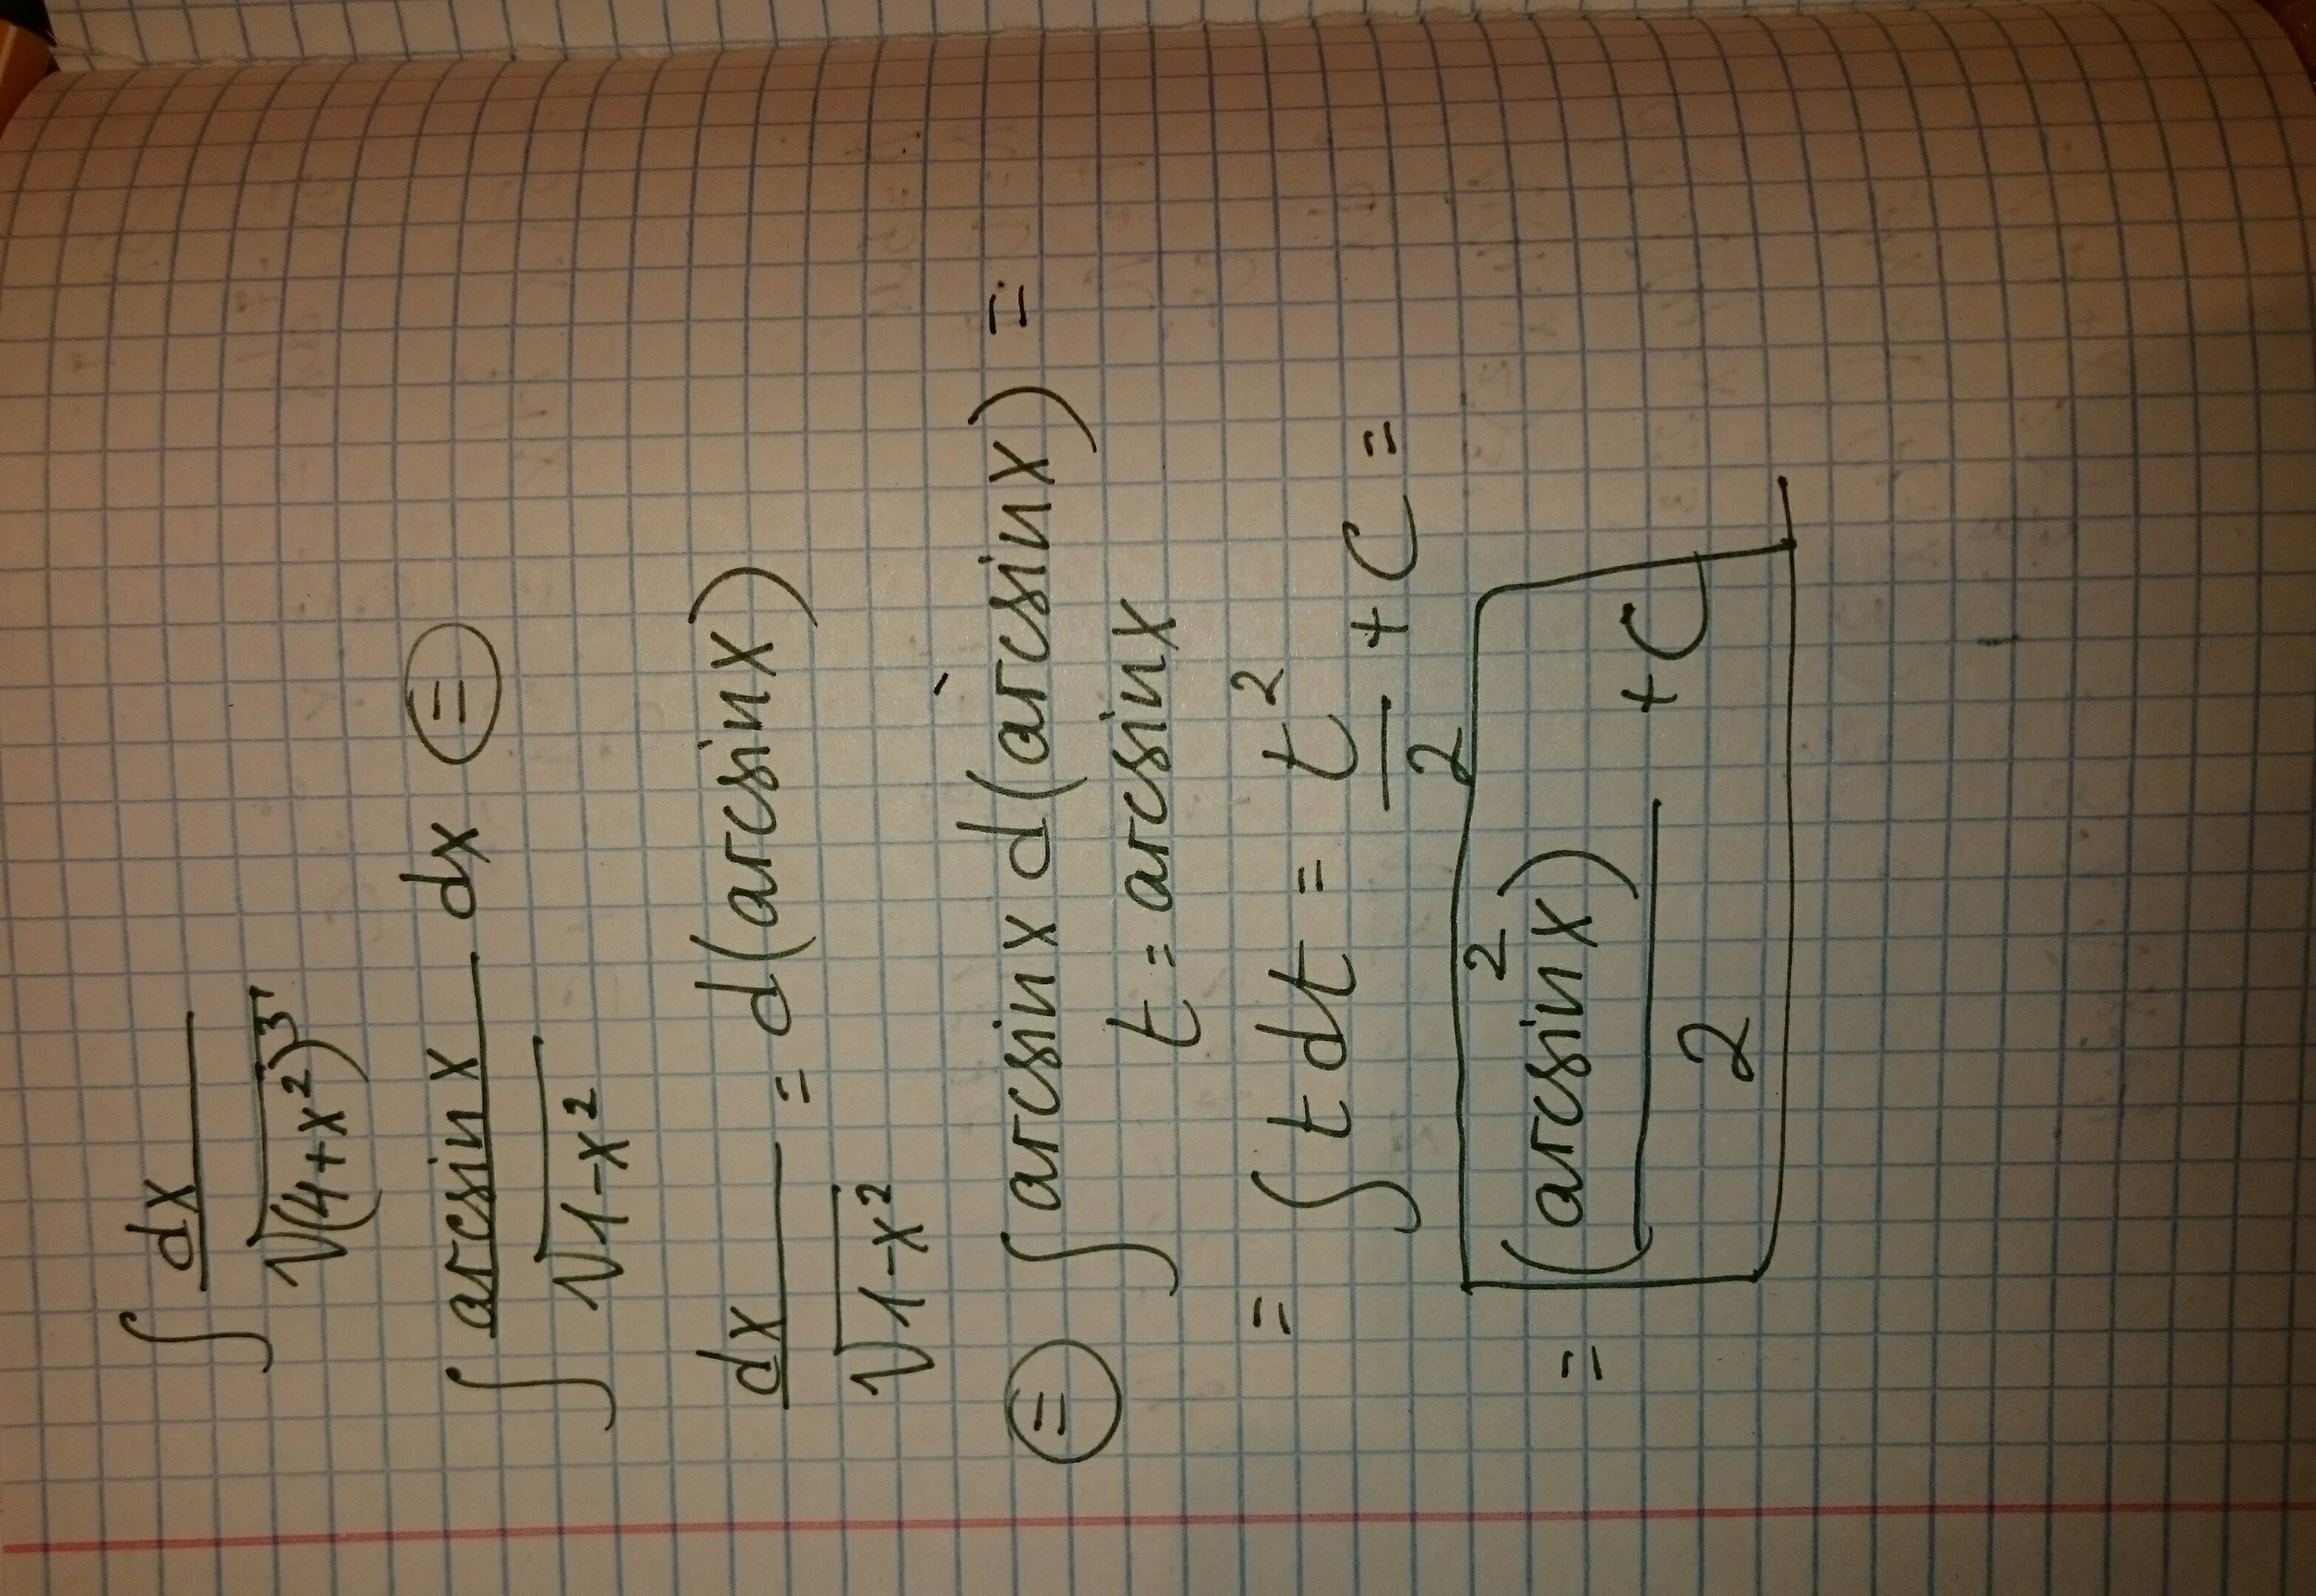 ∫ dx / √(4+x²)³
∫ arcsin x / √1-x² dx =
dx / √1-x² = d(arcsin x)
= ∫ arcsin x d(arcsin x) =
t = arcsin x
= ∫ t dt = t² / 2 + C =
= (arcsin² x) / 2 + C